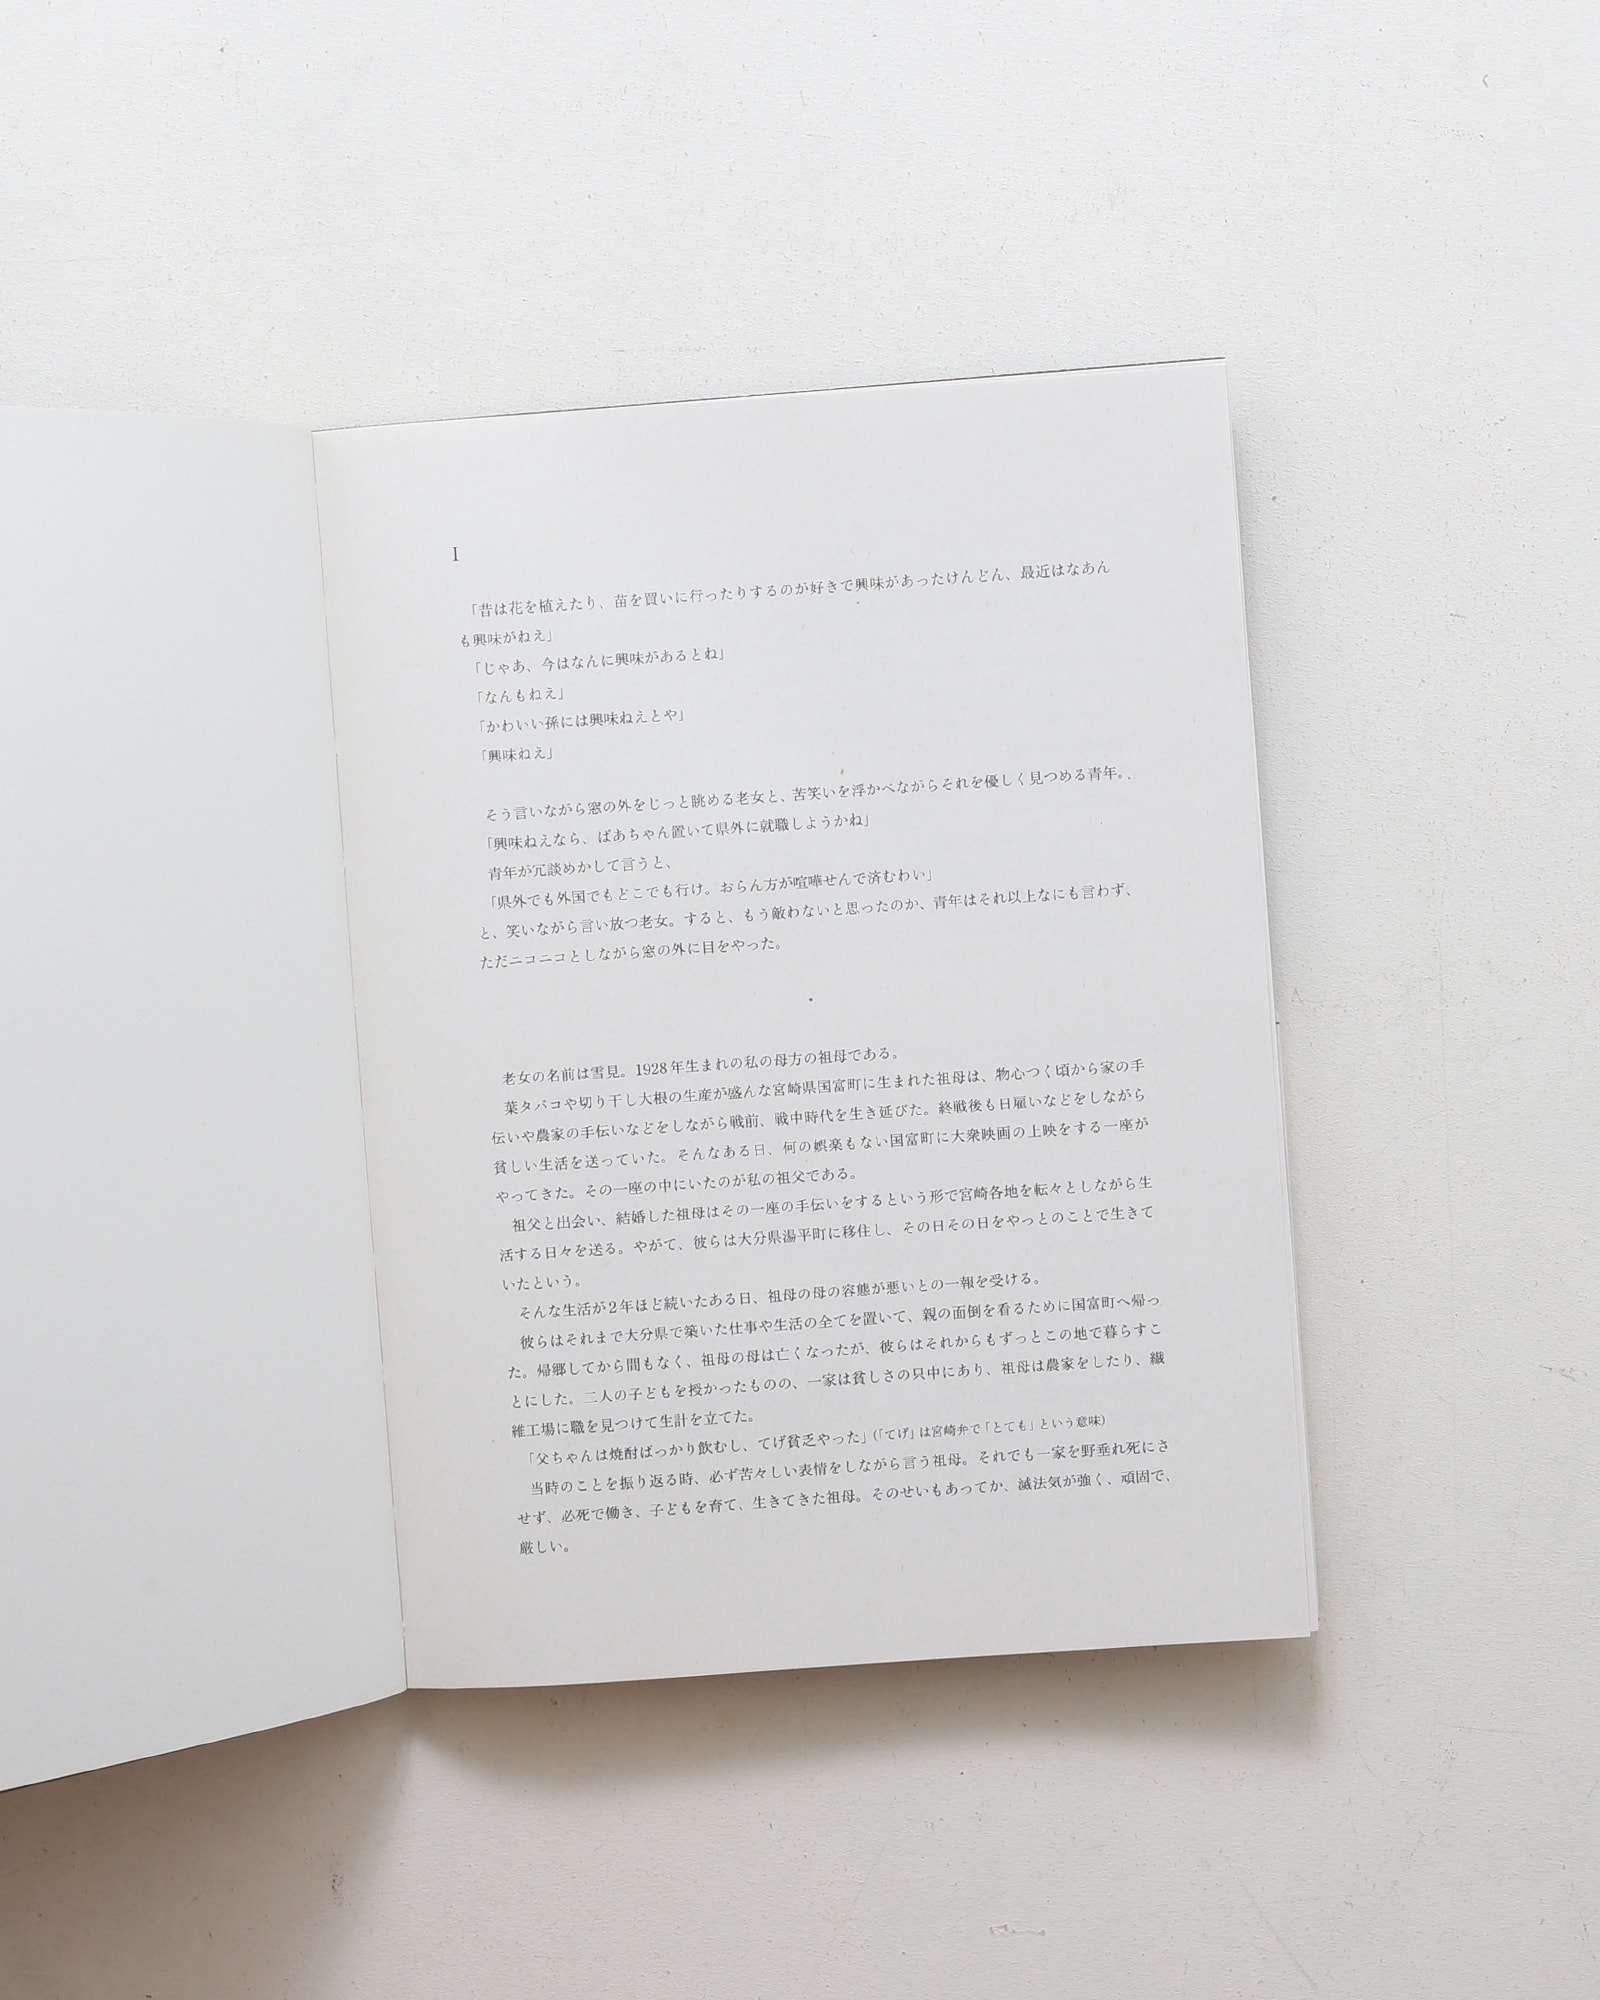 I
「昔は花を植えたり、苗を買いに行ったりするのが好きで興味があったけんどん、最近はなあん
も興味がねえ」
「じゃあ、今はなんに興味があるとね」
「なんもねえ」
「かわいい孫には興味ねえとや」
「興味ねえ」
そう言いながら窓の外をじっと眺める老女と、苦笑いを浮かべながらそれを優しく見つめる青年。
「興味ねえなら、ばあちゃん置いて県外に就職しようかね」
青年が冗談めかして言うと、
「県外でも外国でもどこでも行け。おらん方が喧嘩せんで済むわい」
と、笑いながら言い放つ老女。すると、もう敵わないと思ったのか、青年はそれ以上なにも言わず、
ただニコニコとしながら窓の外に目をやった。
老女の名前は雪見。1928年生まれの私の母方の祖母である。
葉タバコや切り干し大根の生産が盛んな宮崎県国富町に生まれた祖母は、物心つく頃から家の手
伝いや農家の手伝いなどをしながら戦前、戦中時代を生き延びた。終戦後も日雇いなどをしながら
貧しい生活を送っていた。そんなある日、何の娯楽もない国富町に大衆映画の上映をする一座が
やってきた。その一座の中にいたのが私の祖父である。
祖父と出会い、結婚した祖母はその一座の手伝いをするという形で宮崎各地を転々としながら生
活する日々を送る。やがて、彼らは大分県湯平町に移住し、その日その日をやっとのことで生きて
いたという。
そんな生活が2年ほど続いたある日、祖母の母の容態が悪いとの一報を受ける。
彼らはそれまで大分県で築いた仕事や生活の全てを置いて、親の面倒を看るために国富町へ帰っ
た。帰郷してから間もなく、祖母の母は亡くなったが、彼らはそれからもずっとこの地で暮らすこ
とにした。二人の子どもを授かったものの、一家は貧しさの只中にあり、祖母は農家をしたり、繊
維工場に職を見つけて生計を立てた。
「父ちゃんは焼酎ばっかり飲むし、てげ貧乏やった」(「てげ」は宮崎弁で「とても」という意味)
当時のことを振り返る時、必ず苦々しい表情をしながら言う祖母。それでも一家を野垂れ死にさ
せず、必死で働き、子どもを育て、生きてきた祖母。そのせいもあってか、滅法気が強く、頑固で、
厳しい。